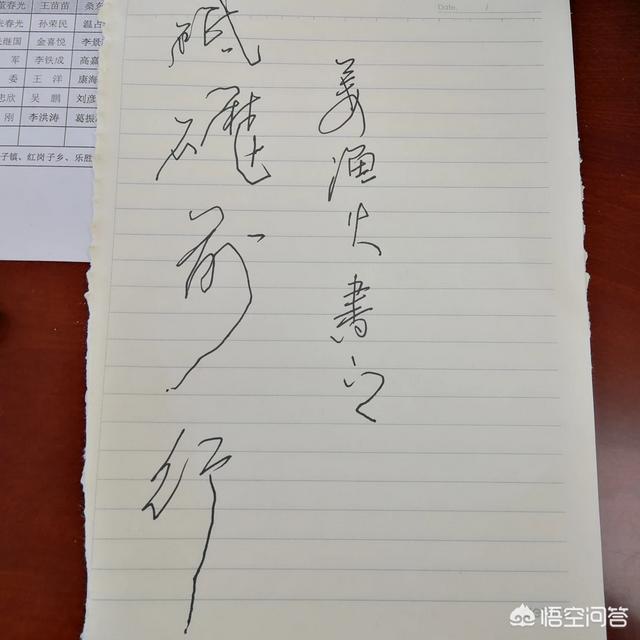 董春光 王苗苗
春光 孙荣民 温占
继国 金喜悦 李景
军 李铁成 高嘉
委 王洋 康海
忠欣 吴鹏 刘彦
刚 李洪涛 葛振
子镇、红岗子乡、乐胜
Date. /
砥礪前行
姜渔火書之
悟空问答